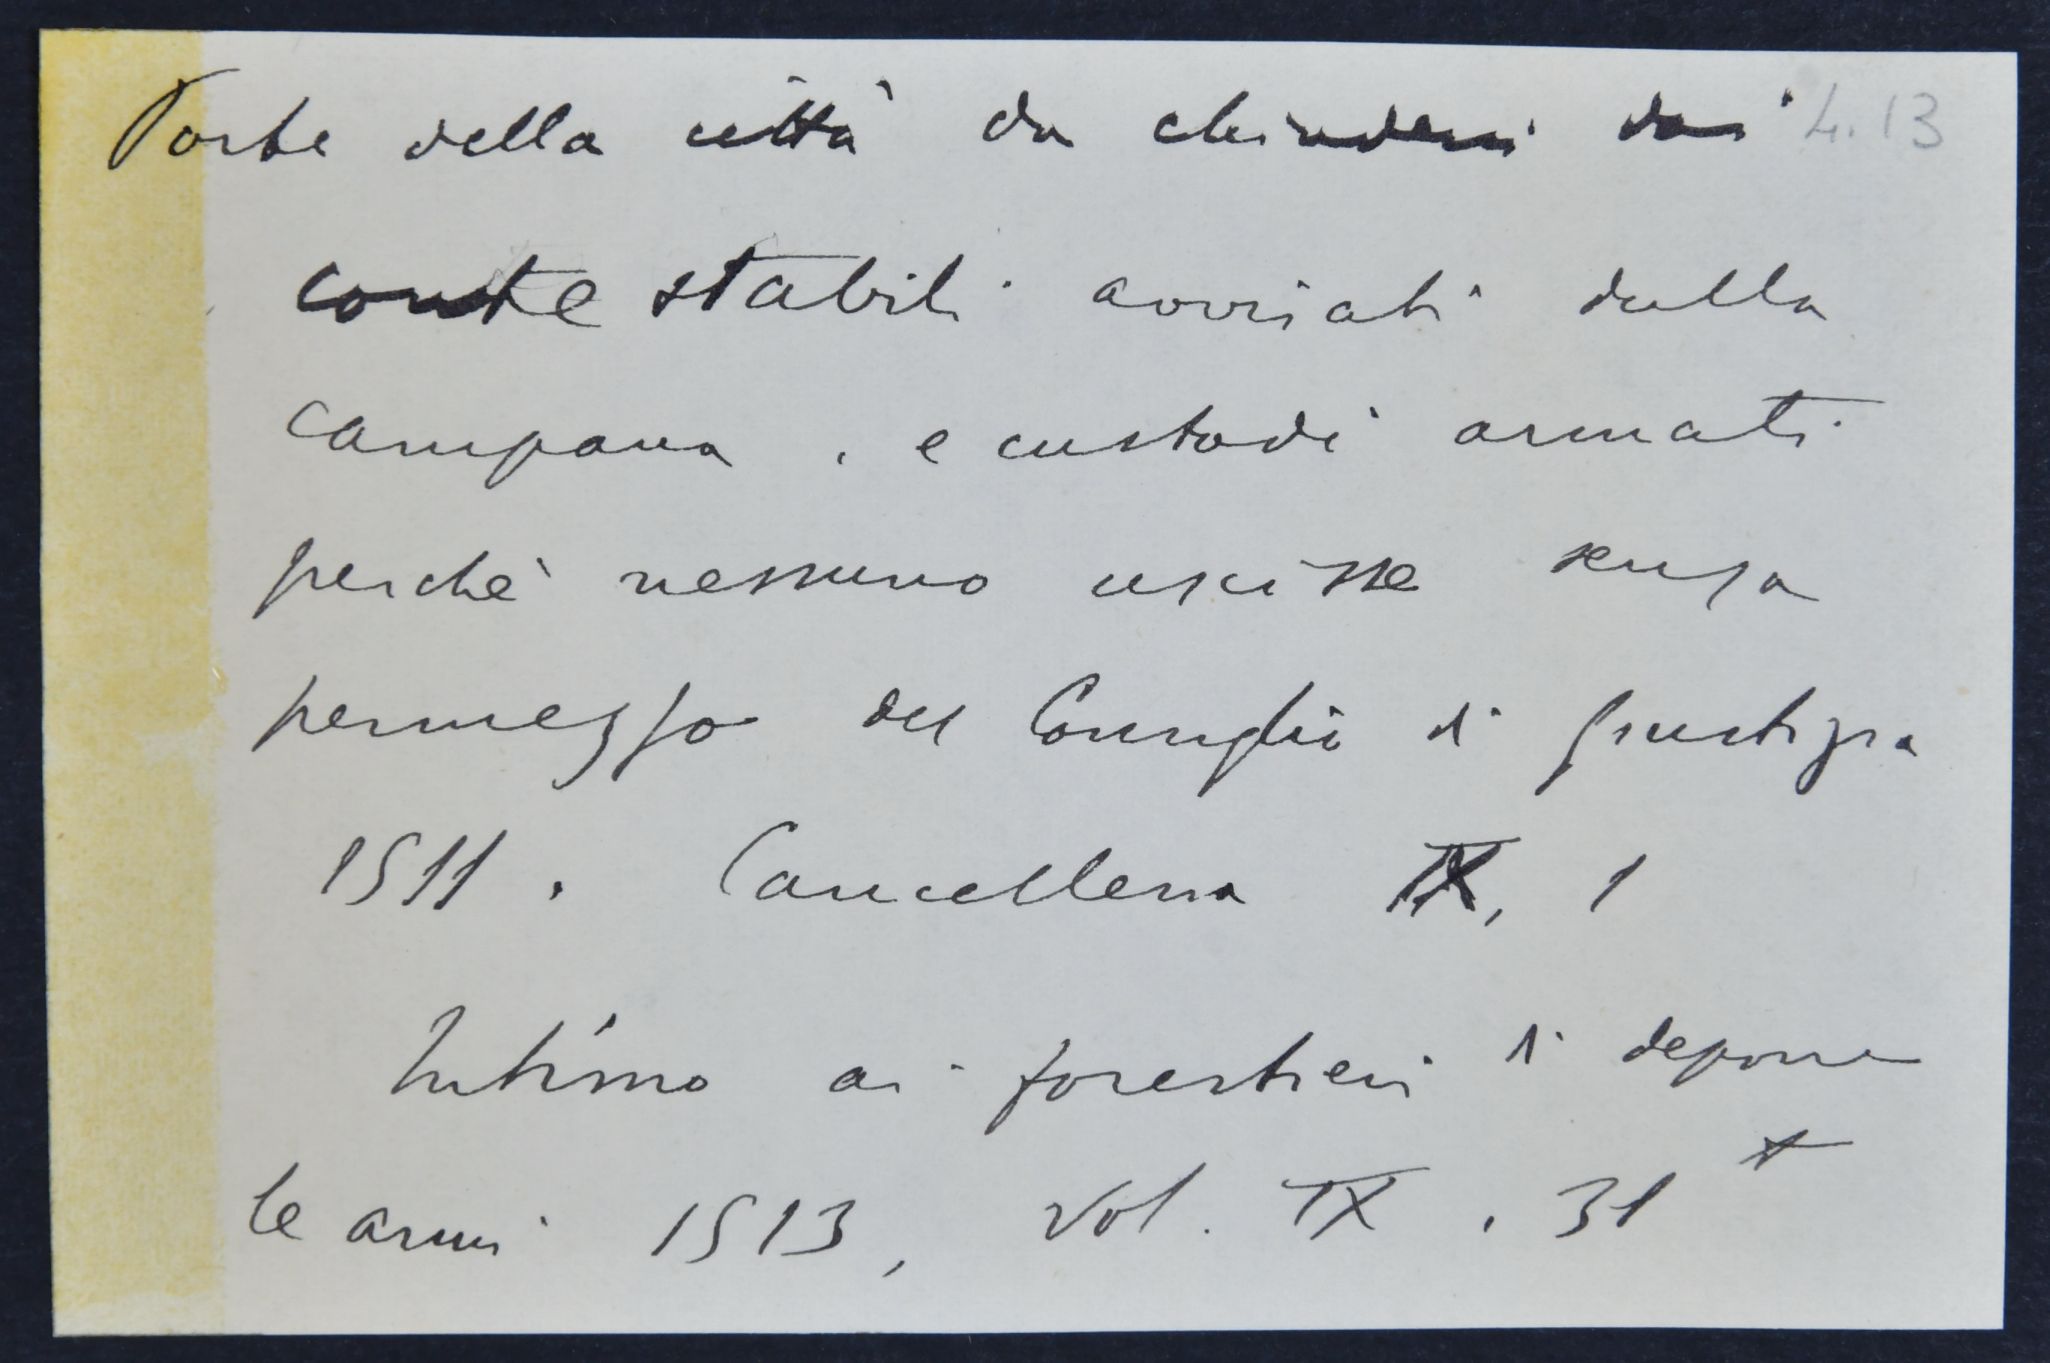 Porte della città da chiudersi dai 4.13
contestabili avvisati dalla
campana, e custodi armati
perchè nessuno uscisse senza
permezzo del Consiglio di Giustizia
1511. Cancelleria IX, 1
Intimo ai forestieri di deporre
le armi 1513, vol. IX, 31